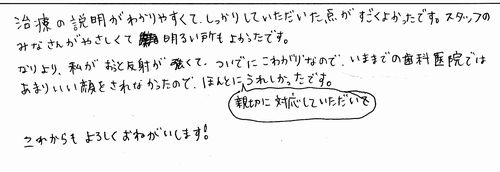 治療の説明がわかりやすくて、しっかりしていただいた点がすごくよかったです。スタッフの
みなさんがやさしくて明るい所もよかったです。
なりより、私がおぅと反射が強くて、ついでにこわがりなので、いままでの歯科医院では
あまりいい顔をされなかったので、ほんとにうれしかったです。
親切に対応していただいて
これからもよろしくおねがいします!